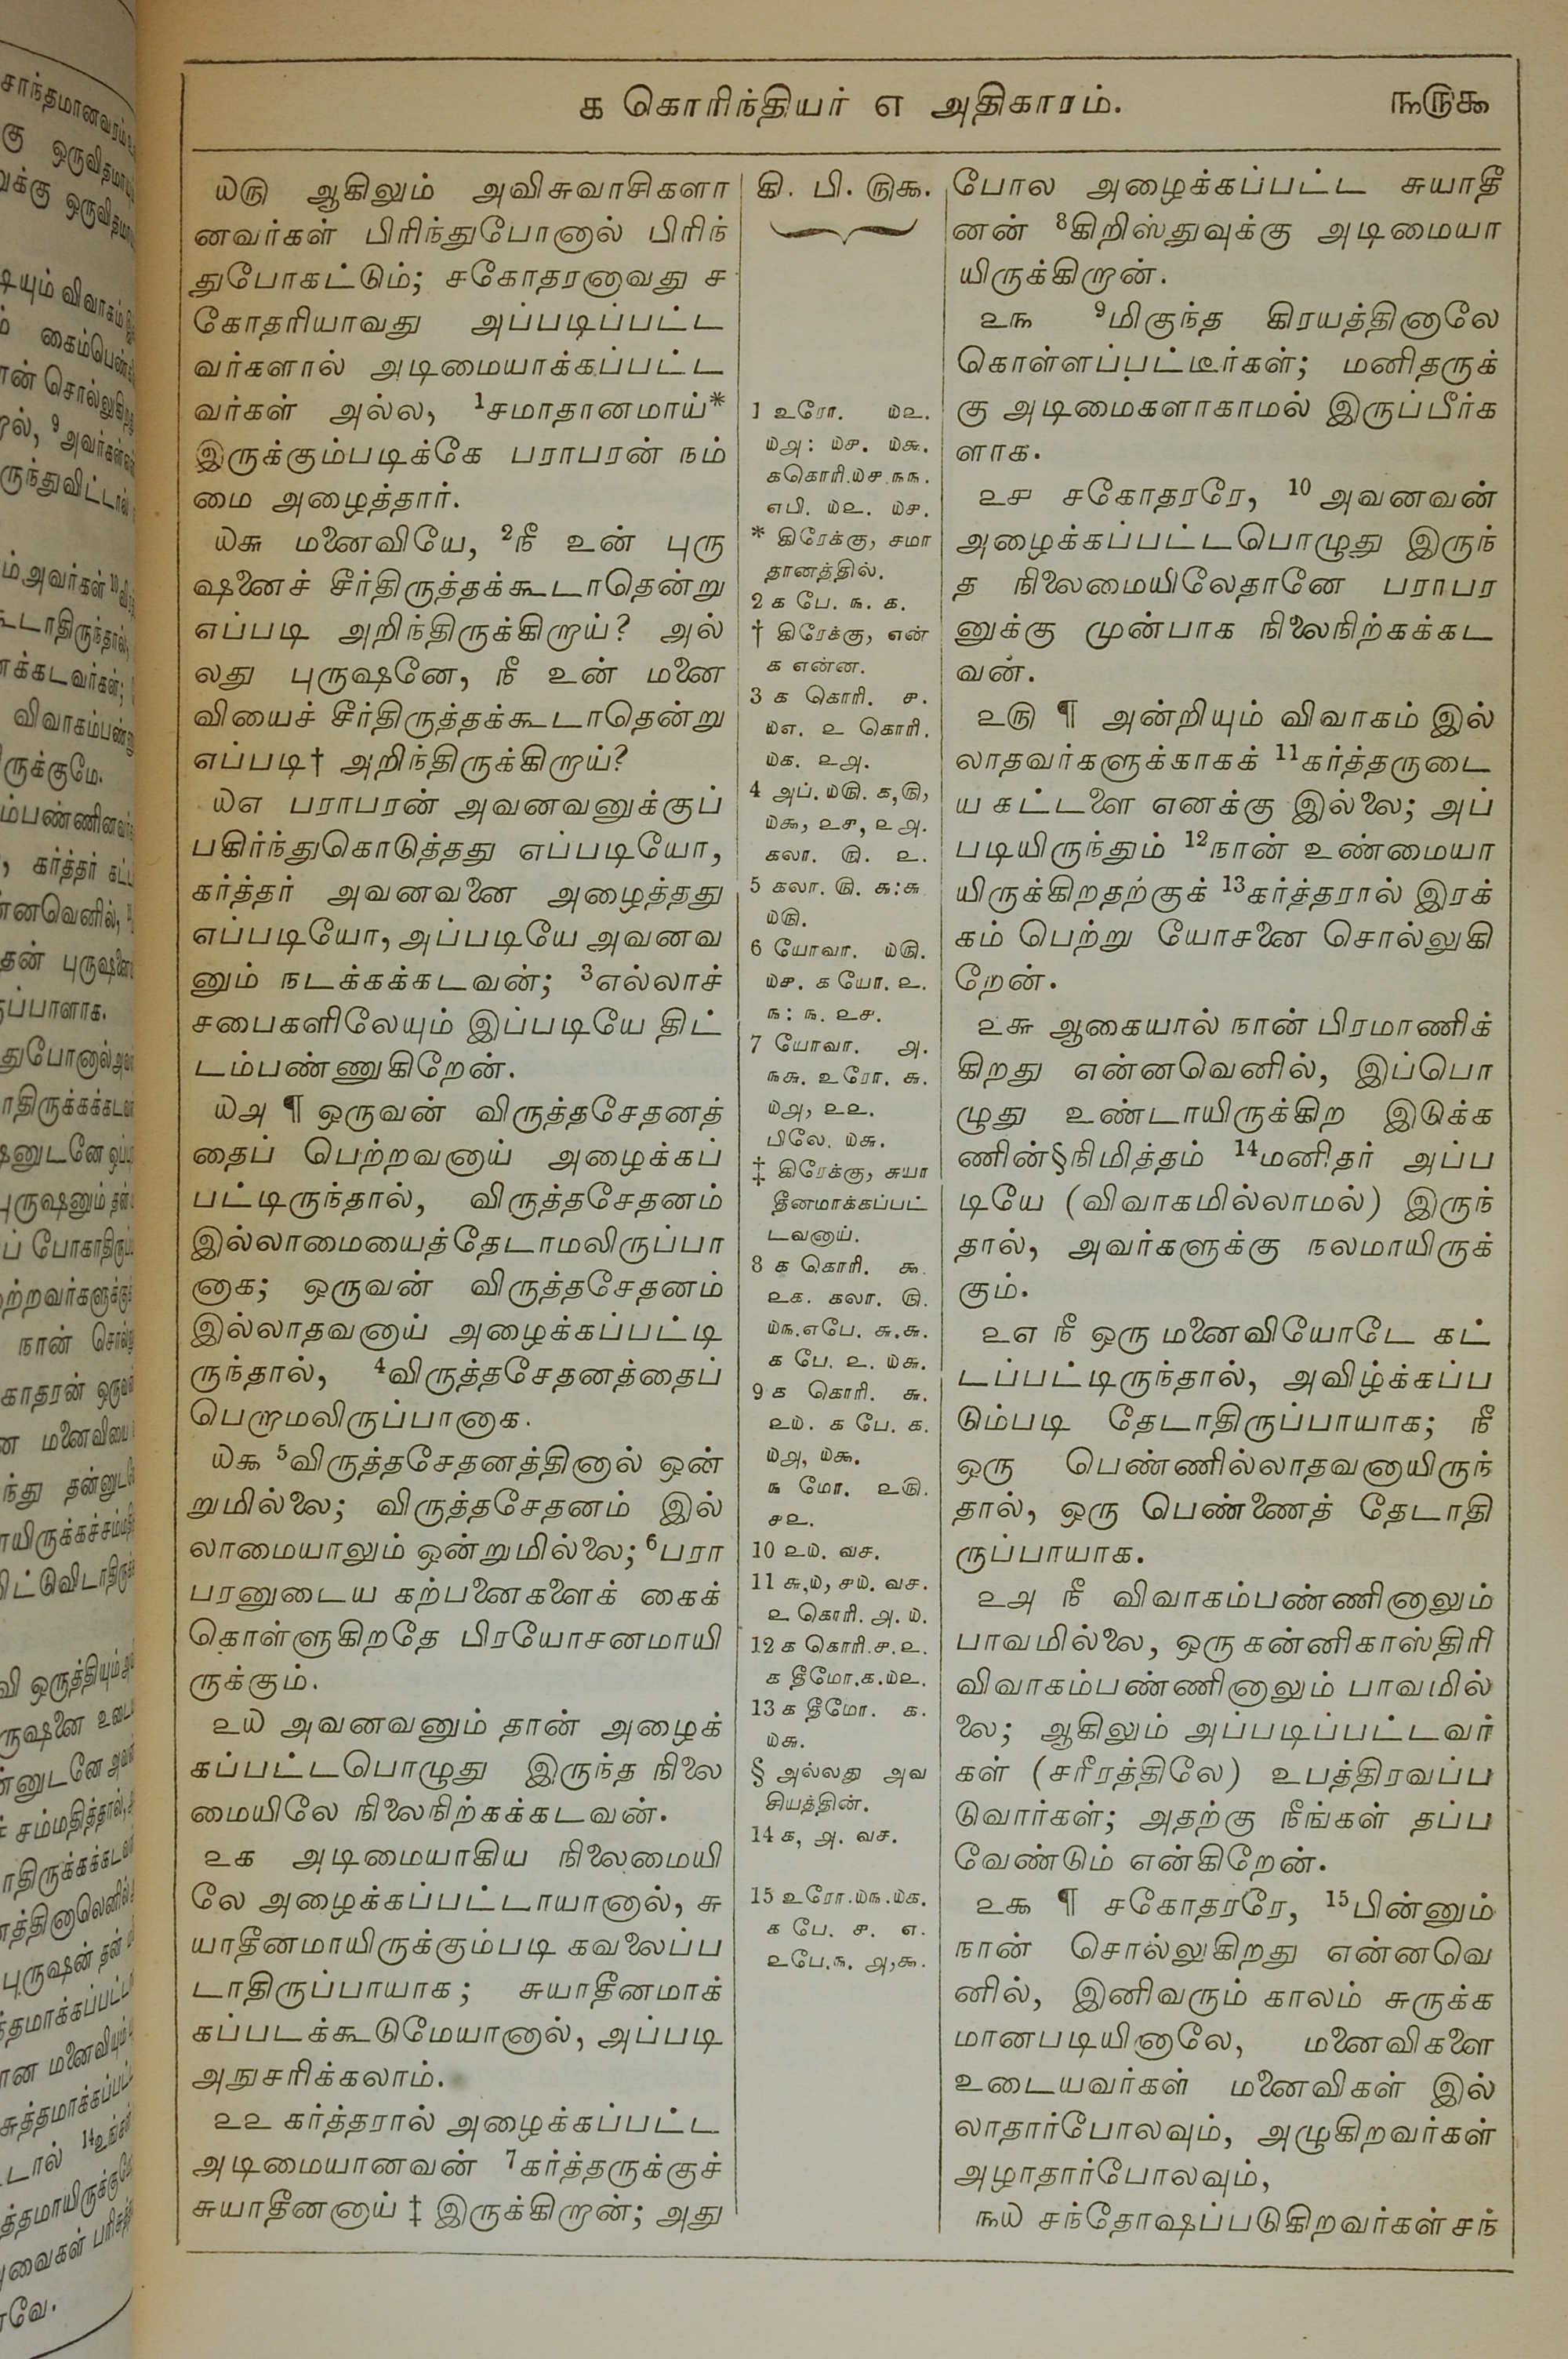 ௧ கொரிந்தியர் ௭ அதிகாரம்.
௩௫௯
௰௫ ஆகிலும் அவிசுவாசிகளா
னவர்கள் பிரிந்துபோனால் பிரிந்
துபோகட்டும்; சகோதரனாவது ச
கோதரியாவது அப்படிப்பட்ட
வர்களால் அடிமையாக்கப்பட்ட
வர்கள் அல்ல, 1சமாதானமாய்*
இருக்கும்படிக்கே பராபரன் நம்
மை அழைத்தார்.
௰௬ மனைவியே, 2நீ உன் புரு
ஷனைச் சீர்திருத்தக்கூடாதென்று
எப்படி அறிந்திருக்கிறாய்? அல்
லது புருஷனே, நீ உன் மனை
வியைச் சீர்திருத்தக்கூடாதென்று
எப்படி† அறிந்திருக்கிறாய்?
௰௭ பராபரன் அவனவனுக்குப்
பகிர்ந்துகொடுத்தது எப்படியோ,
கர்த்தர் அவனவனை அழைத்தது
எப்படியோ, அப்படியே அவனவ
னும் நடக்கக்கடவன்; 3எல்லாச்
சபைகளிலேயும் இப்படியே திட்
டம்பண்ணுகிறேன்.
௰௮ ¶ ஒருவன் விருத்தசேதனத்
தைப் பெற்றவனாய் அழைக்கப்
பட்டிருந்தால், விருத்தசேதனம்
இல்லாமையைத்தேடாமலிருப்பா
னாக; ஒருவன் விருத்தசேதனம்
இல்லாதவனாய் அழைக்கப்பட்டி
ருந்தால், 4விருத்தசேதனத்தைப்
பெறாமலிருப்பானாக.
௰௯ 5விருத்தசேதனத்தினால் ஒன்
றுமில்லை; விருத்தசேதனம் இல்
லாமையாலும் ஒன்றுமில்லை; 6பரா
பரனுடைய கற்பனைகளைக் கைக்
கொள்ளுகிறதே பிரயோசனமாயி
ருக்கும்.
௨௰ அவனவனும் தான் அழைக்
கப்பட்டபொழுது இருந்த நிலை
மையிலே நிலைநிற்கக்கடவன்.
௨௧ அடிமையாகிய நிலைமையி
லே அழைக்கப்பட்டாயானால், சு
யாதீனமாயிருக்கும்படி கவலைப்ப
டாதிருப்பாயாக; சுயாதீனமாக்
கப்படக்கூடுமேயானால், அப்படி
அநுசரிக்கலாம்.
௨௨ கர்த்தரால் அழைக்கப்பட்ட
அடிமையானவன் 7கர்த்தருக்குச்
சுயாதீனனாய் ‡ இருக்கிறான்; அது
கி. பி. ௫௯.
1 உரோ. ௰௨.
௰௮: ௰௪. ௰௯.
௧கொரி.௰௪.௩௩.
எபி. ௰௨. ௰௪.
* கிரேக்கு, சமா
தானத்தில்.
2 ௧ பே. ௩. ௧.
† கிரேக்கு, என்
க என்ன.
3 ௧ கொரி. ௪.
௰௭. ௨ கொரி.
௰௧. ௨௮.
4 அப். ௰௫. ௧,௫,
௰௯, ௨௪, ௨௮.
கலா. ௫. ௨.
5 கலா. ௫. ௬:௬
௰௫.
6 யோவா. ௰௫.
௰௪. ௧ யோ. ௨.
௩: ௩. ௨௪.
7 யோவா. ௮.
௩௬. உரோ. ௬.
௰௮, ௨௨.
பிலே. ௰௬.
‡ கிரேக்கு, சுயா
தீனமாக்கப்பட்
டவனாய்.
8 ௧ கொரி. ௯
௨௧. கலா. ௫.
௰௩.எபே. ௬.௬.
௧ பே. ௨. ௰௬.
9 ௧ கொரி. ௬.
௨௰. ௧ பே. ௧.
௰௮, ௰௯.
௩ மோ. ௨௫.
௪௨.
10 ௨௰. வச.
11 ௬,௰, ௪௰. வச.
௨ கொரி. ௮. ௰.
12 ௧ கொரி.௪.௨.
௧ தீமோ.௧.௰௨.
13 ௧ தீமோ. ௧.
௰௬.
§ அல்லது அவ
சியத்தின்.
14 ௧, ௮. வச.
15 உரோ.௰௩.௰௧.
௧ பே. ௪. ௭.
௨பே.௩. ௮,௯.
போல அழைக்கப்பட்ட சுயாதீ
னன் 8கிறிஸ்துவுக்கு அடிமையா
யிருக்கிறான்.
௨௩ 9மிகுந்த கிரயத்தினாலே
கொள்ளப்பட்டீர்கள்; மனிதருக்
கு அடிமைகளாகாமல் இருப்பீர்க
ளாக.
௨௪ சகோதரரே, 10 அவனவன்
அழைக்கப்பட்டபொழுது இருந்
த நிலைமையிலேதானே பராபர
னுக்கு முன்பாக நிலைநிற்கக்கட
வன்.
௨௫ ¶ அன்றியும் விவாகம் இல்
லாதவர்களுக்காகக் 11கர்த்தருடை
ய கட்டளை எனக்கு இல்லை; அப்
படியிருந்தும் 12நான் உண்மையா
யிருக்கிறதற்குக் 13கர்த்தரால் இரக்
கம் பெற்று யோசனை சொல்லுகி
றேன்.
௨௬ ஆகையால் நான் பிரமாணிக்
கிறது என்னவெனில், இப்பொ
ழுது உண்டாயிருக்கிற இடுக்க
ணின்§நிமித்தம் 14மனிதர் அப்ப
டியே (விவாகமில்லாமல்) இருந்
தால், அவர்களுக்கு நலமாயிருக்
கும்.
௨௭ நீ ஒரு மனைவியோடே கட்
டப்பட்டிருந்தால், அவிழ்க்கப்ப
டும்படி தேடாதிருப்பாயாக; நீ
ஒரு பெண்ணில்லாதவனாயிருந்
தால், ஒரு பெண்ணைத் தேடாதி
ருப்பாயாக.
௨௮ நீ விவாகம்பண்ணினாலும்
பாவமில்லை, ஒரு கன்னிகாஸ்திரி
விவாகம்பண்ணினாலும் பாவமில்
லை; ஆகிலும் அப்படிப்பட்டவர்
கள் (சரீரத்திலே) உபத்திரவப்ப
டுவார்கள்; அதற்கு நீங்கள் தப்ப
வேண்டும் என்கிறேன்.
௨௯ ¶ சகோதரரே, 15பின்னும்
நான் சொல்லுகிறது என்னவெ
னில், இனிவரும் காலம் சுருக்க
மானபடியினாலே, மனைவிகளை
உடையவர்கள் மனைவிகள் இல்
லாதார்போலவும், அழுகிறவர்கள்
அழாதார்போலவும்,
௩௰ சந்தோஷப்படுகிறவர்கள் சந்